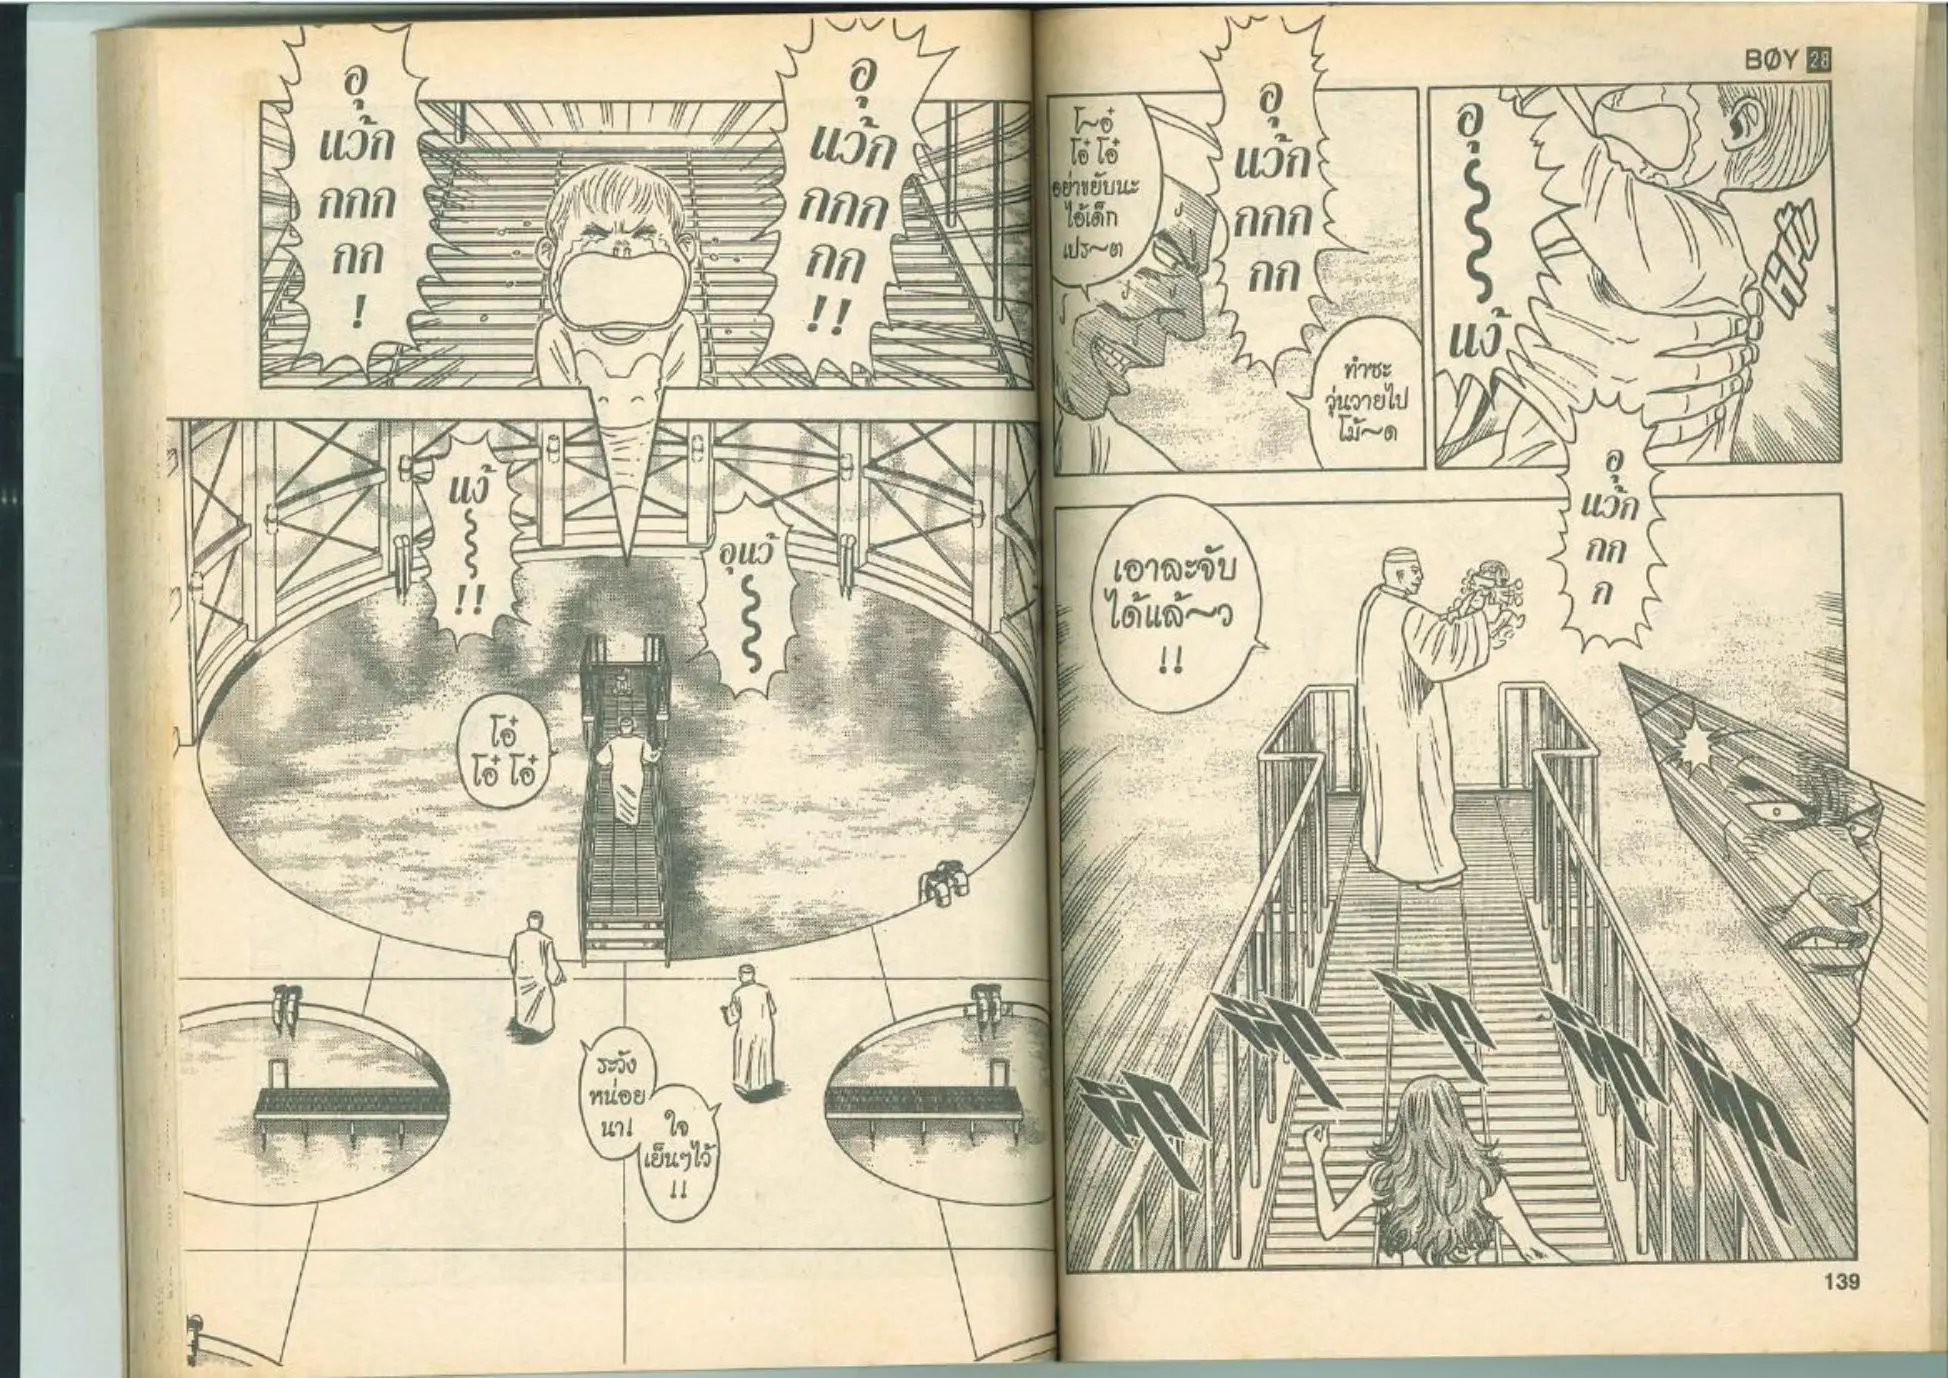 อุ
แว้ก
กกก
กก
!
อุ
แว้ก
กกก
กก
!!
แง้
!!
อุแว้
โอ๋
โอ๋ โอ๋
ระวัง
หน่อย
นา!
ใจ
เย็นๆไว้
!!
BØY 28
โ~อ๋
โอ๋ โอ๋
อย่าขยับนะ
ไอ้เด็ก
เปร~ต
อุ
แว้ก
กกก
กก
ทำซะ
วุ่นวายไป
โม้~ด
อุ
แง้
หมับ
อุ
แว้ก
กก
ก
เอาละจับ
ได้แล้~ว
!!
ตึก
ตึก
ตึก
ตึก
ตึก
139